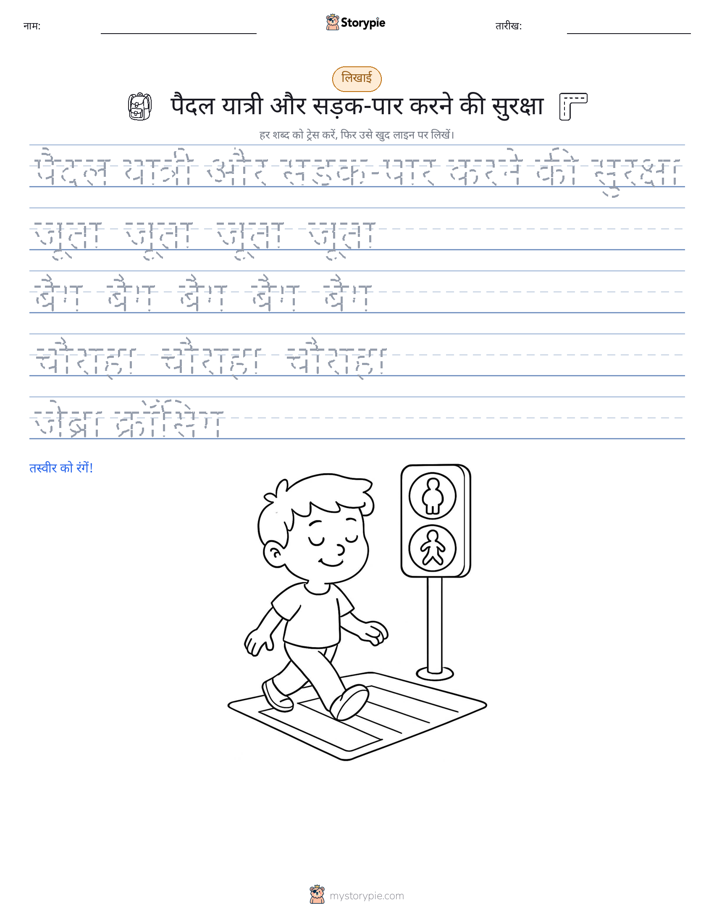 नाम:
Storypie
तारीख:
लिखाई
पैदल यात्री और सड़क-पार करने की सुरक्षा
हर शब्द को ट्रेस करें, फिर उसे खुद लाइन पर लिखें।
पैदल यात्री और सड़क-पार करने की सुरक्षा
जूता जूता जूता जूता
बैग बैग बैग बैग बैग
चौराहा चौराहा चौराहा
जेब्रा क्रॉसिंग
तस्वीर को रंगें!
mystorypie.com